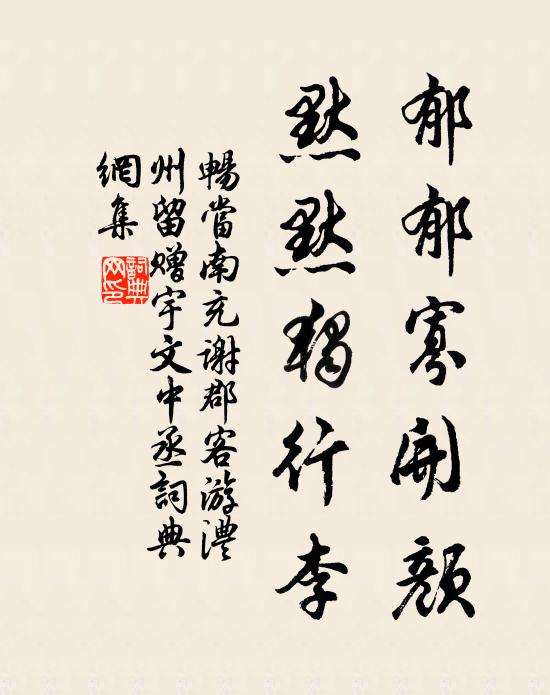 郁郁寡開顔
默默獨行李
暢當南充謝郡客游澧
州留贈宇文中丞詞典
網集
詞典網印